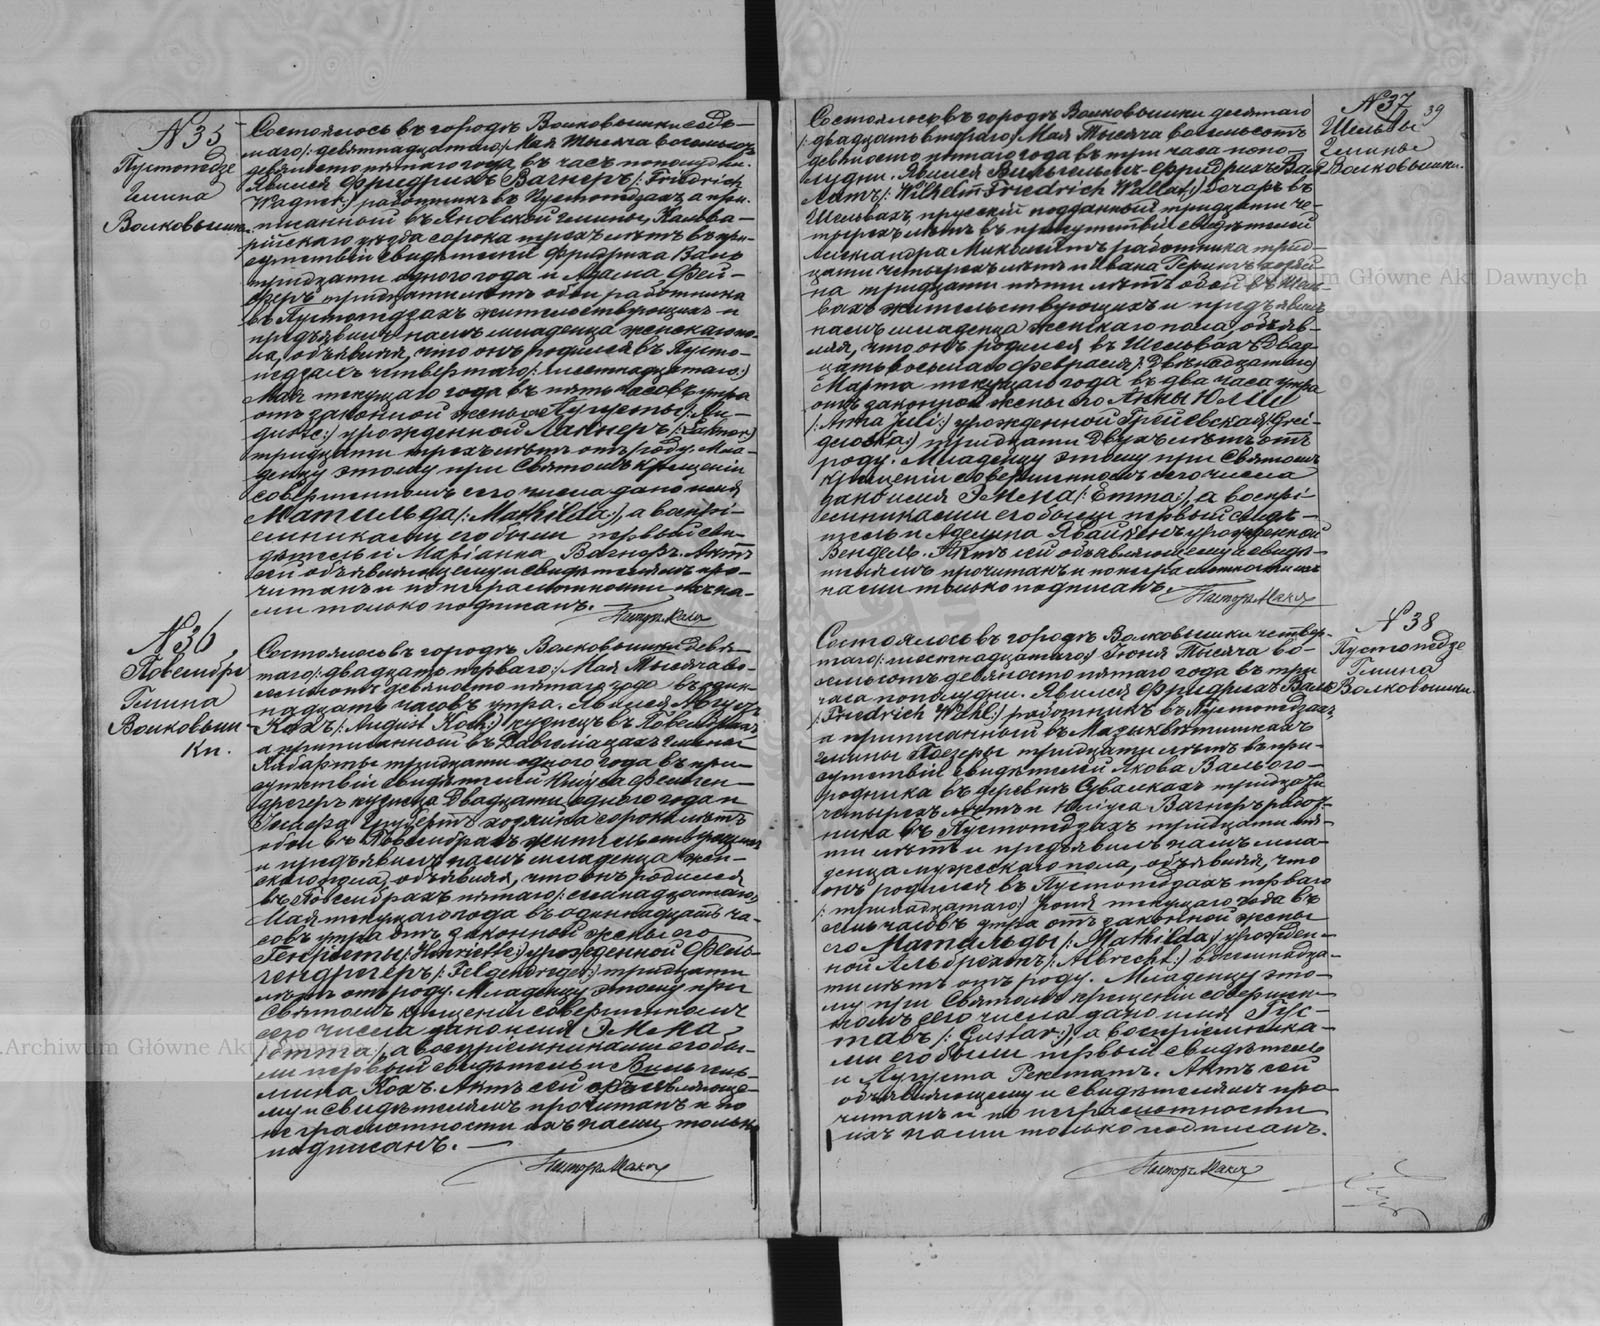 N 35
Пустопедзе
Гмина
Волковышки
Состоялось въ городѣ Волковышки седь-
маго /: девятнадцатаго :/ Мая Тысяча восемьсотъ
девяносто пятаго года въ часъ пополудни.
Явился Фридрихъ Вагнеръ /: Friedrich
Wagner :/ работникъ въ Пустопедзахъ а при-
писанный въ Яновской гмины, Кальва-
рійскаго уѣзда сорока трехъ лѣтъ въ при-
сутствіи свидѣтелей Фридриха Валь
тридцати одного года и Адама Фей-
тридцати лѣтъ обои работника
въ Пустопедзахъ жительствующихъ и
предъявилъ намъ младенца женскаго по-
ла, объявляя, что онъ родился въ Пусто-
педзахъ четвертаго /: шестнадцатаго :/
Мая текущаго года въ пять часовъ утра
отъ законной жены Августы /: Au-
guste :/ урожденной Лакнеръ /: Lakner :/
тридцати трехъ лѣтъ отъ роду. Мла-
денцу этому при Святомъ Крещеніи
совершенномъ сего числа дано имя
Матильда /: Mathilda :/, а воспрі-
емниками его были первый сви-
дѣтель и Маріанна Вагнеръ. Актъ
сей объявляющему и свидѣтелямъ про-
читанъ и по неграмотности ихъ на-
ми только подписанъ.
Пасторъ
N 36
Повембры
Гмина
Волковыш-
ки.
Состоялось въ городѣ Волковышки девя-
таго /: двадцать перваго :/ Мая Тысяча во-
семьсотъ девяносто пятаго года въ один-
надцать часовъ утра. Явился Августъ
Кохъ /: August Koch :/ кузнецъ въ Повембрахъ
а приписанный въ гмины
Кибарты тридцати одного года въ при-
сутствіи свидѣтелей Юліуса Фельген-
дрегеръ кузнеца двадцати одного года и
хозяина сорока лѣтъ
обои въ Повембрахъ жительствующихъ
и предъявилъ намъ младенца жен-
скаго пола, объявляя, что онъ родился
въ Повембрахъ пятаго /: семнадцатаго :/
Мая текущаго года въ одиннадцать ча-
совъ утра отъ законной жены его
Генріеты /: Henriette :/ урожденной Фель-
гендрегеръ /: Felgendreger :/ тридцати
лѣтъ отъ роду. Младенцу этому при
Святомъ Крещеніи совершенномъ
сего числа дано имя Эмма
/: Emma :/, а воспріемниками его бы-
ли первый свидѣтель и Вильгель-
мина Кохъ. Актъ сей объявляюще-
му и свидѣтелямъ прочитанъ и по
неграмотности ихъ нами только
подписанъ.
Пасторъ
N 37
39
Шельвы
Гмины
Волковышки.
Состоялось въ городѣ Волковышки десятаго
/: двадцать втораго :/ Мая Тысяча восемьсотъ
девяносто пятаго года въ три часа попо-
лудни. Явился Вильгельмъ-Фридрихъ Вал-
латъ /: Wilhelm Friedrich Wallat :/ въ
Шельвахъ, прусскій подданный тридцати че-
тырехъ лѣтъ въ присутствіи свидѣтелей
Александра работника трид-
цати четырехъ лѣтъ и Ивана хозяи-
на тридцати пяти лѣтъ обои въ Шель-
вахъ жительствующихъ и предъявилъ
намъ младенца женскаго пола, объяв-
ляя, что онъ родился въ Шельвахъ двад-
цать восьмаго Февраля /: двѣнадцатаго :/
Марта текущаго года въ два часа утра
отъ законной жены его Анны Юліи
/: Anna Juli :/ урожденной
тридцати двухъ лѣтъ отъ
роду. Младенцу этому при Святомъ
Крещеніи совершенномъ сего числа
дано имя Эмма /: Emma :/, а воспрі-
емниками его были первый свидѣ-
тель и Аделина урожденной
Вендель. Актъ сей объявляющему и свидѣ-
телямъ прочитанъ и по неграмотности ихъ
нами только подписанъ.
Пасторъ
N 38
Пустопедзе
Гмина
Волковышки.
Состоялось въ городѣ Волковышки четвер-
таго /: шестнадцатаго :/ Іюня Тысяча во-
семьсотъ девяносто пятаго года въ три
часа пополудни. Явился Фридрихъ Валь
/: Friedrich Wahl :/ работникъ въ Пустопедзахъ,
а приписанный въ
гмины тридцати лѣтъ въ при-
сутствіи свидѣтелей Якова Валь ого-
родника въ деревнѣ Сувалкахъ тридцати
четырехъ лѣтъ и Юліуса Вагнеръ работ-
ника въ Пустопедзахъ тридцати пя-
ти лѣтъ и предъявилъ намъ мла-
денца мужескаго пола, объявляя, что
онъ родился въ Пустопедзахъ перваго
/: тринадцатаго :/ Іюня текущаго года въ
семь часовъ утра отъ законной жены
его Матильды /: Mathilda :/ урожден-
ной Альбрехтъ /: Albrecht :/ восемнадца-
ти лѣтъ отъ роду. Младенцу это-
му при Святомъ крещеніи совершен-
номъ сего числа дано имя Гус-
тавъ /: Gustav :/, а воспріемника-
ми его были первый свидѣтель
и Августа Рекматъ. Актъ сей
объявляющему и свидѣтелямъ про-
читанъ и по неграмотности
ихъ нами только подписанъ.
Пасторъ
Archiwum Główne Akt Dawnych
Archiwum Główne Akt Dawnych